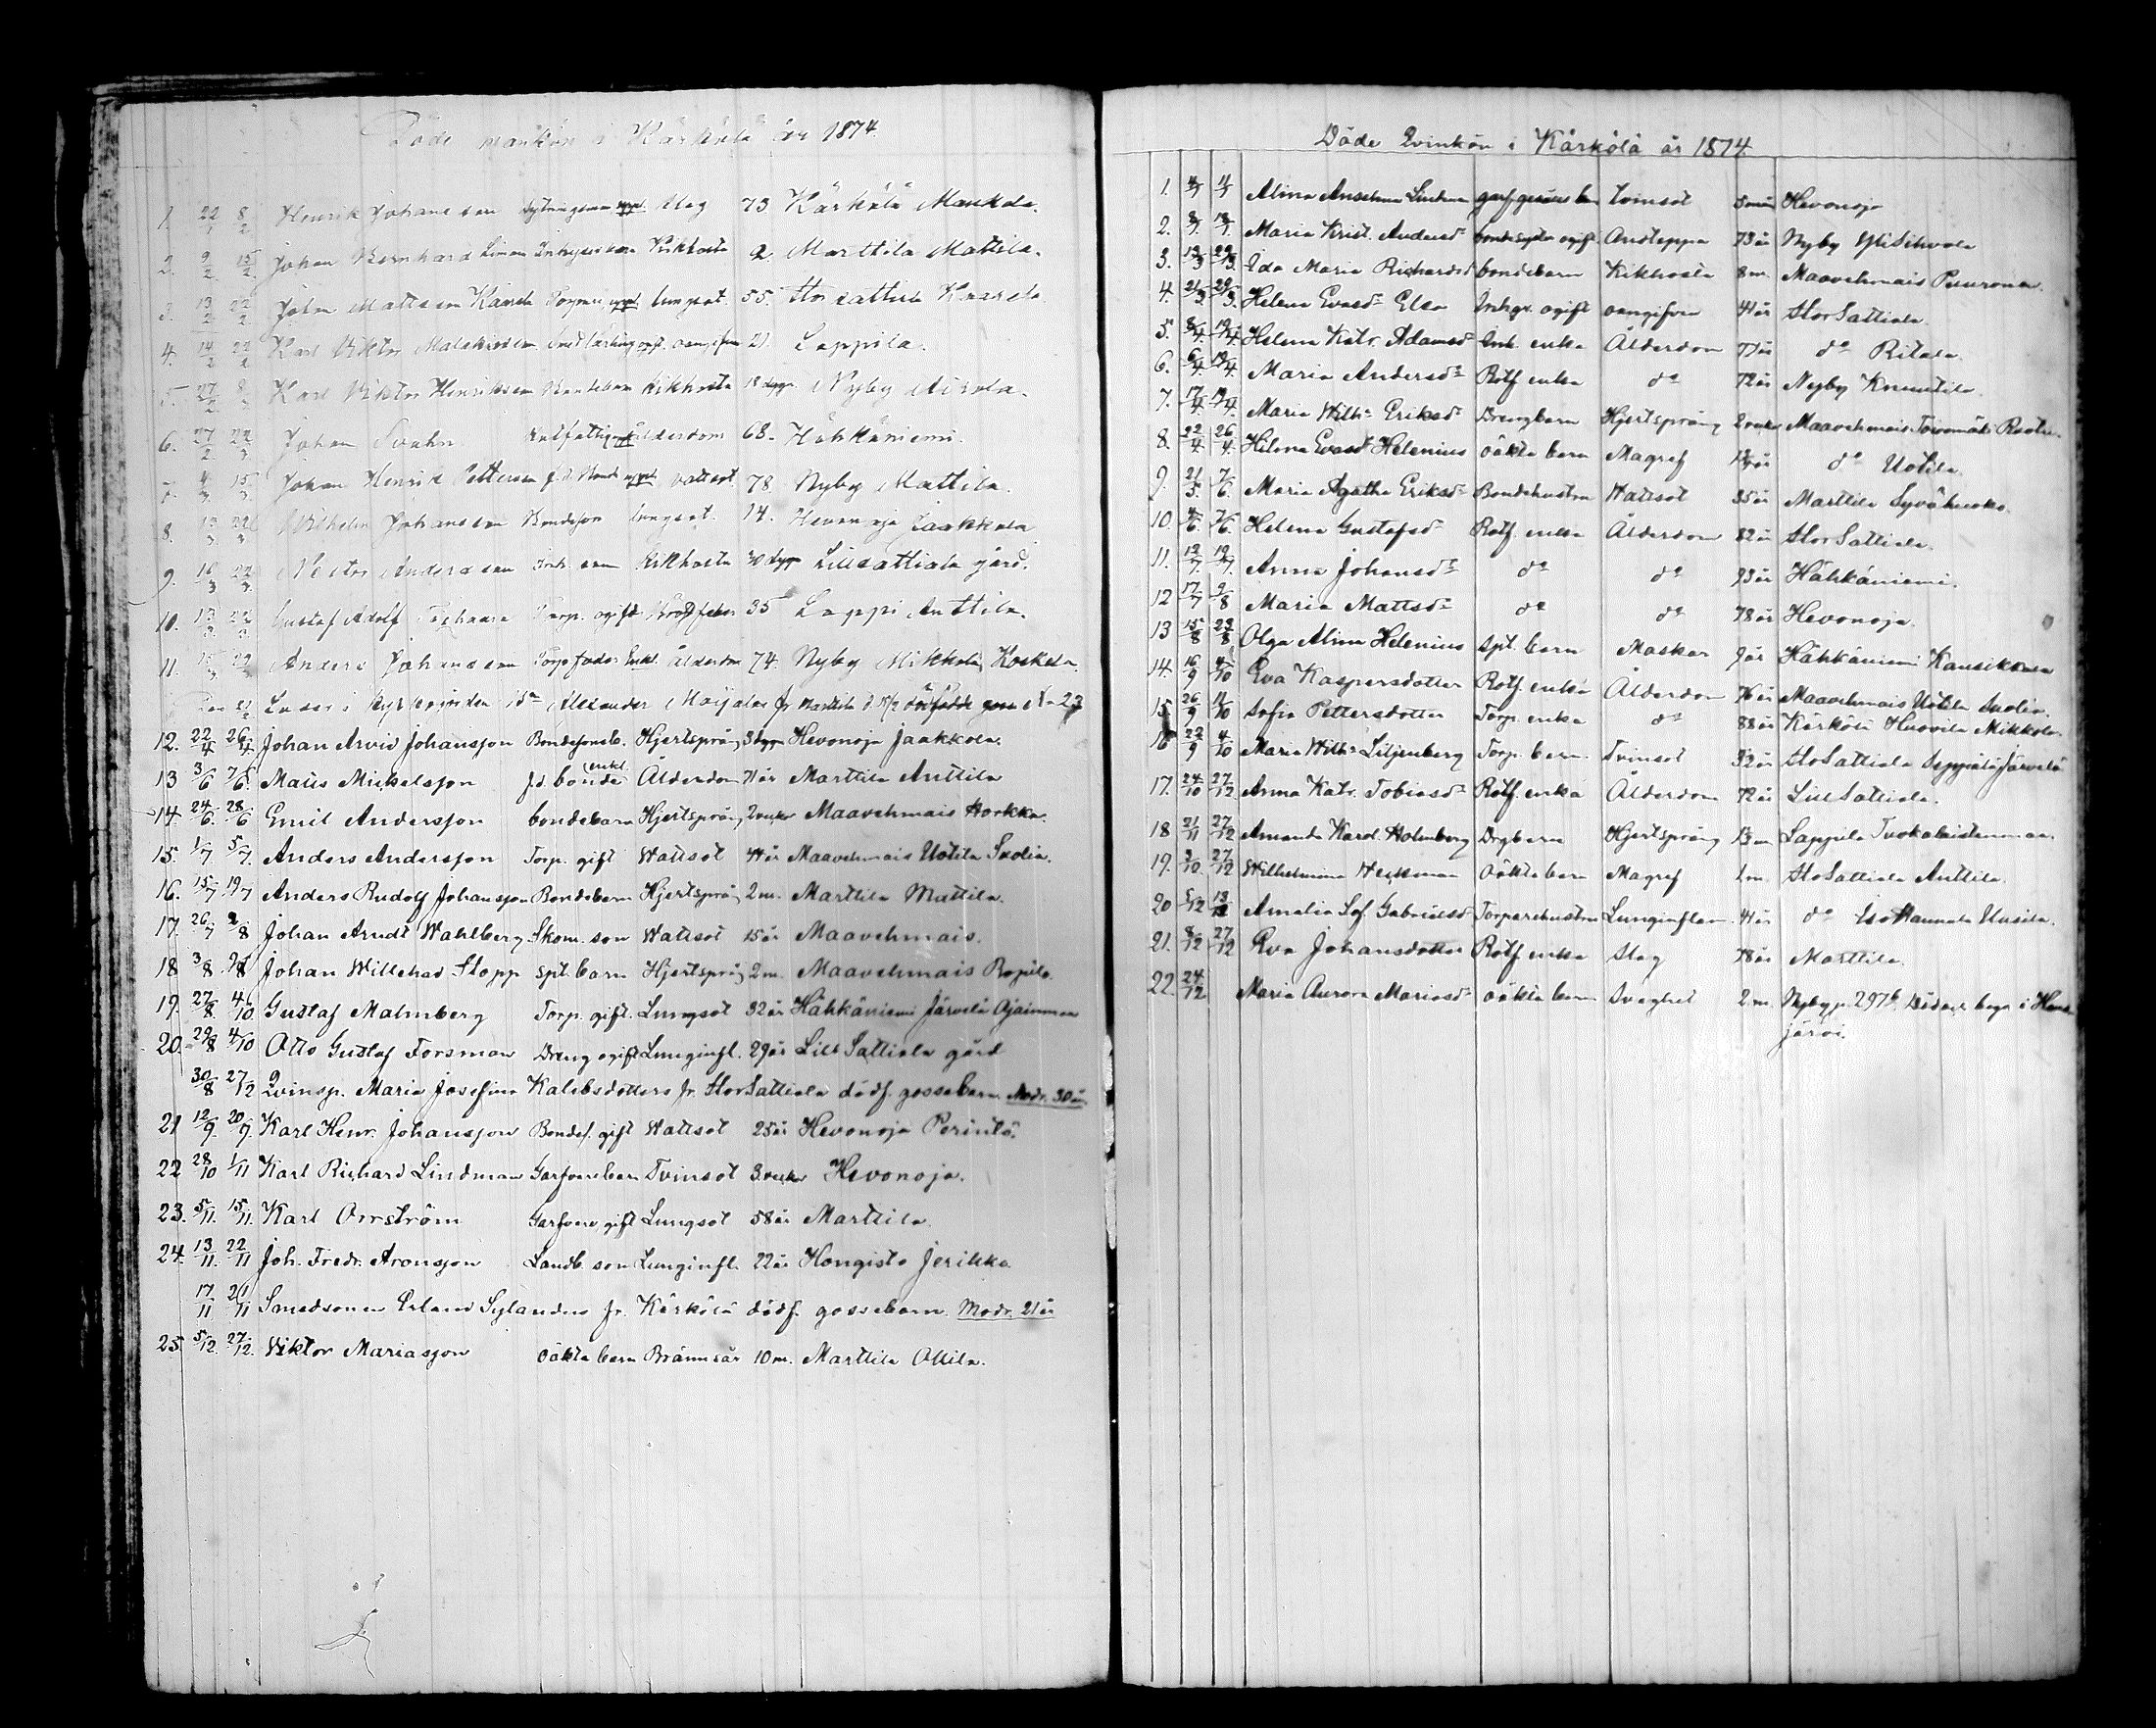 Döde mankön i Kärkölä år 1874.
1. 22/1 8/2 Henrik Johansson Slag 73 Kärkölä Maukola.
2. 9/2 15/2 Johan Bernhard Kikhosta 2 Marttila Mattila.
3. 13/2 22/2 John Mattsson lungsot. 55. Stor Sattiala
4. 14/2 22/2 Karl Viktor oangifven 21. Lappila.
5. 27/2 8/3 Karl Viktor Henriksson Bondebarn Kikhosta 18 dygn Nyby
6. 27/2 22/3 Johan Svahn Ålderdom 68. Hähkäniemi.
7. 4/3 15/3 Johan Henrik Pettersson f.d. Bonde Vattsot. 78 Nyby Mattila.
8. 13/3 22/3 Wilhelm Johansson Bondeson lungsot. 14. Hevonoja Jaakkola
9. 16/3 22/3 Nestor Andersson Inh. son Kikhosta 30 dygn Lillsattiala gård.
10. 13/3 22/3 Gustaf Adolf Torp. ogift 35 Lappi Anttila.
11. 15/3 29/3 Anders Johansson Torpfader Enkl. Ålderdom 74. Nyby Mikkola, Koskela.
Alexander Maijalas fr. Marttila
12. 22/4 26/4 Johan Arvid Johansson Bondesonsb. Hjertsprång 3 dygn Hevonoja Jaakkola.
13 3/6 7/6 Matts Mickelsson f.d. bonde enkl. Ålderdom 71 år Marttila Anttila
14. 24/6 28/6 Emil Andersson bondebarn Hjertsprång 2 veckor Maavehmais Horkka.
15. 1/7 5/7 Anders Andersson Torp. gift Wattsot 44 år Maavehmais Uotila Suolia.
16. 15/7 19/7 Anders Rudolf Johansson Bondebarn Hjertsprång 2 m. Marttila Mattila.
17. 26/7 2/8 Johan Arndt Wahlberg Skom. son Wattsot 15 år Maavehmais.
18 3/8 9/8 Johan Willehad Stopp spt. barn Hjertsprång 2 m. Maavehmais Ropila.
19. 27/8 4/10 Gustaf Malmberg Torp. gift. Lungsot 32 år Hähkäniemi Järvelä Ojainmaa
20. 29/8 4/10 Otto Gustaf Forsman Dreng ogift Lunginfl. 29 år Lill Sattiala gård
30/8 27/12 Qvinsp. Maria Josefina Kalebsdotters fr. Stor Sattiala dödf. gossebarn. Modr. 30 år.
21 12/9. 20/9. Karl Henr. Johansson Bondes. gift Wattsot 25 år Hevonoja Perintö.
22 28/10 1/11 Karl Richard Lindman Garfvarebarn Tvinsot 3 veckor Hevonoja.
23. 5/11. 15/11. Karl Orrström Garfvare gift Lungsot 58 år Marttila
24. 13/11. 22/11 Joh. Fredr. Aronsson Landb. son Lunginfl. 22 år Hongisto Jerikka
17/11 21/11 Smedsonen Erland Sylanders fr. Kärkölä dödf. gossebarn. Modr. 21 år
25. 5/12. 27/12. Viktor Mariasson oäkta barn Brännsår 10 m. Marttila Ollila.
Döde Qvinkön i Kärkölä år 1874.
1. Alma Anselma Lindman Tvinsot Hevonoja
2. Maria Krist. Andersdr ogift. Andtäppa 73 år Nyby Yli Sihvola
3. 13/3 29/3. Ida Maria Richardsdr bondebarn Kikhosta 8 m. Maavehmais Puuronen.
4. 21/3 29/3. Helena Evasdr Elsa Inhys. ogift oangifven 41 år Stor Sattiala
5. 8/4. 19/4. Helena Katr. Adamsdr Inh. enka Ålderdom 77 år do Ritala.
6. 6/4. 19/4 Maria Andersdr Rotf. enka do 72 år Nyby Knuutila.
7. 17/4. 19/4. Maria Wilh. Eriksdr Drengbarn Hjertsprång 2 veckor Maavehmais
8. 22/4 26/4. Hilma Evasdr Helenius oäkta barn Magref do Uotila.
9. 21/5. 7/6. Maria Agatha Eriksdr Bondehustru Wattsot 35 år Marttila Syväkusko.
10. 4/6. 7/6 Helena Gustafsdr Rotf. enka Ålderdom 82 år Stor Sattiala.
11. 12/7. 19/7. Anna Johansdr do do 93 år Hähkäniemi.
12 17/7 9/8 Maria Mattsdr do do 78 år Hevonoja.
13 15/8 23/8 Olga Alina Helenius spt. barn Maskar 9 år Hähkäniemi Kansikkala
14. 16/9 4/10 Eva Kaspersdotter Rotf. enka Ålderdom 76 år Maavehmais Uotila Suolia.
15 26/9 11/10 Sofia Pettersdotter Torp. enka do 88 år Kärkölä Huovila Mikkola.
16 22/9 4/10 Maria Wilh. Liljenberg Torp. barn Tvinsot Sto Sattiala Seppälä Järvelä
17. 24/10 27/12. Anna Katr. Tobiasdr Rotf. enka Ålderdom 72 år Lill Sattiala.
18 21/11 27/12 Amanda Karol. Holmberg Drgbarn Hjertsprång 13 m. Lappila
19. 3/10 27/12 Wilhelmina Heckman Oäkta barn Magref 1 m. Sto Sattiala Anttila.
20 5/12 13/12 Amalia Sof. Gabrielsdr Torparehustru Lunginflam. 41 år do Iso Hannula Uusila.
21. 8/12 27/12 Eva Johansdotter Rotf. enka Slag 78 år Marttila.
22. 24/12. Maria Aurora Mariasdr oäkta barn Svaghet 2 m. Nyby p. 297b. Död och begr. i Haus-
järvi.